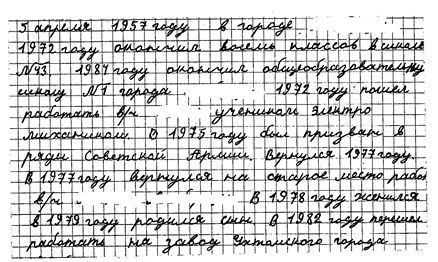 5 апреля 1957 году в городе
1972 году окончил восемь классов в школе
№43 1987 году окончил общеобразовательну
школу №1 города 1972 году пошел
работать в/ч учеником электро
механиком. В 1975 году был призван в
ряды Советской Армии. Вернулся 1977 году.
В 1977 году вернулся на старое место рабо
в/ч В 1978 году женился
в 1979 году родился сын. В 1982 году перешел
работать на завод города